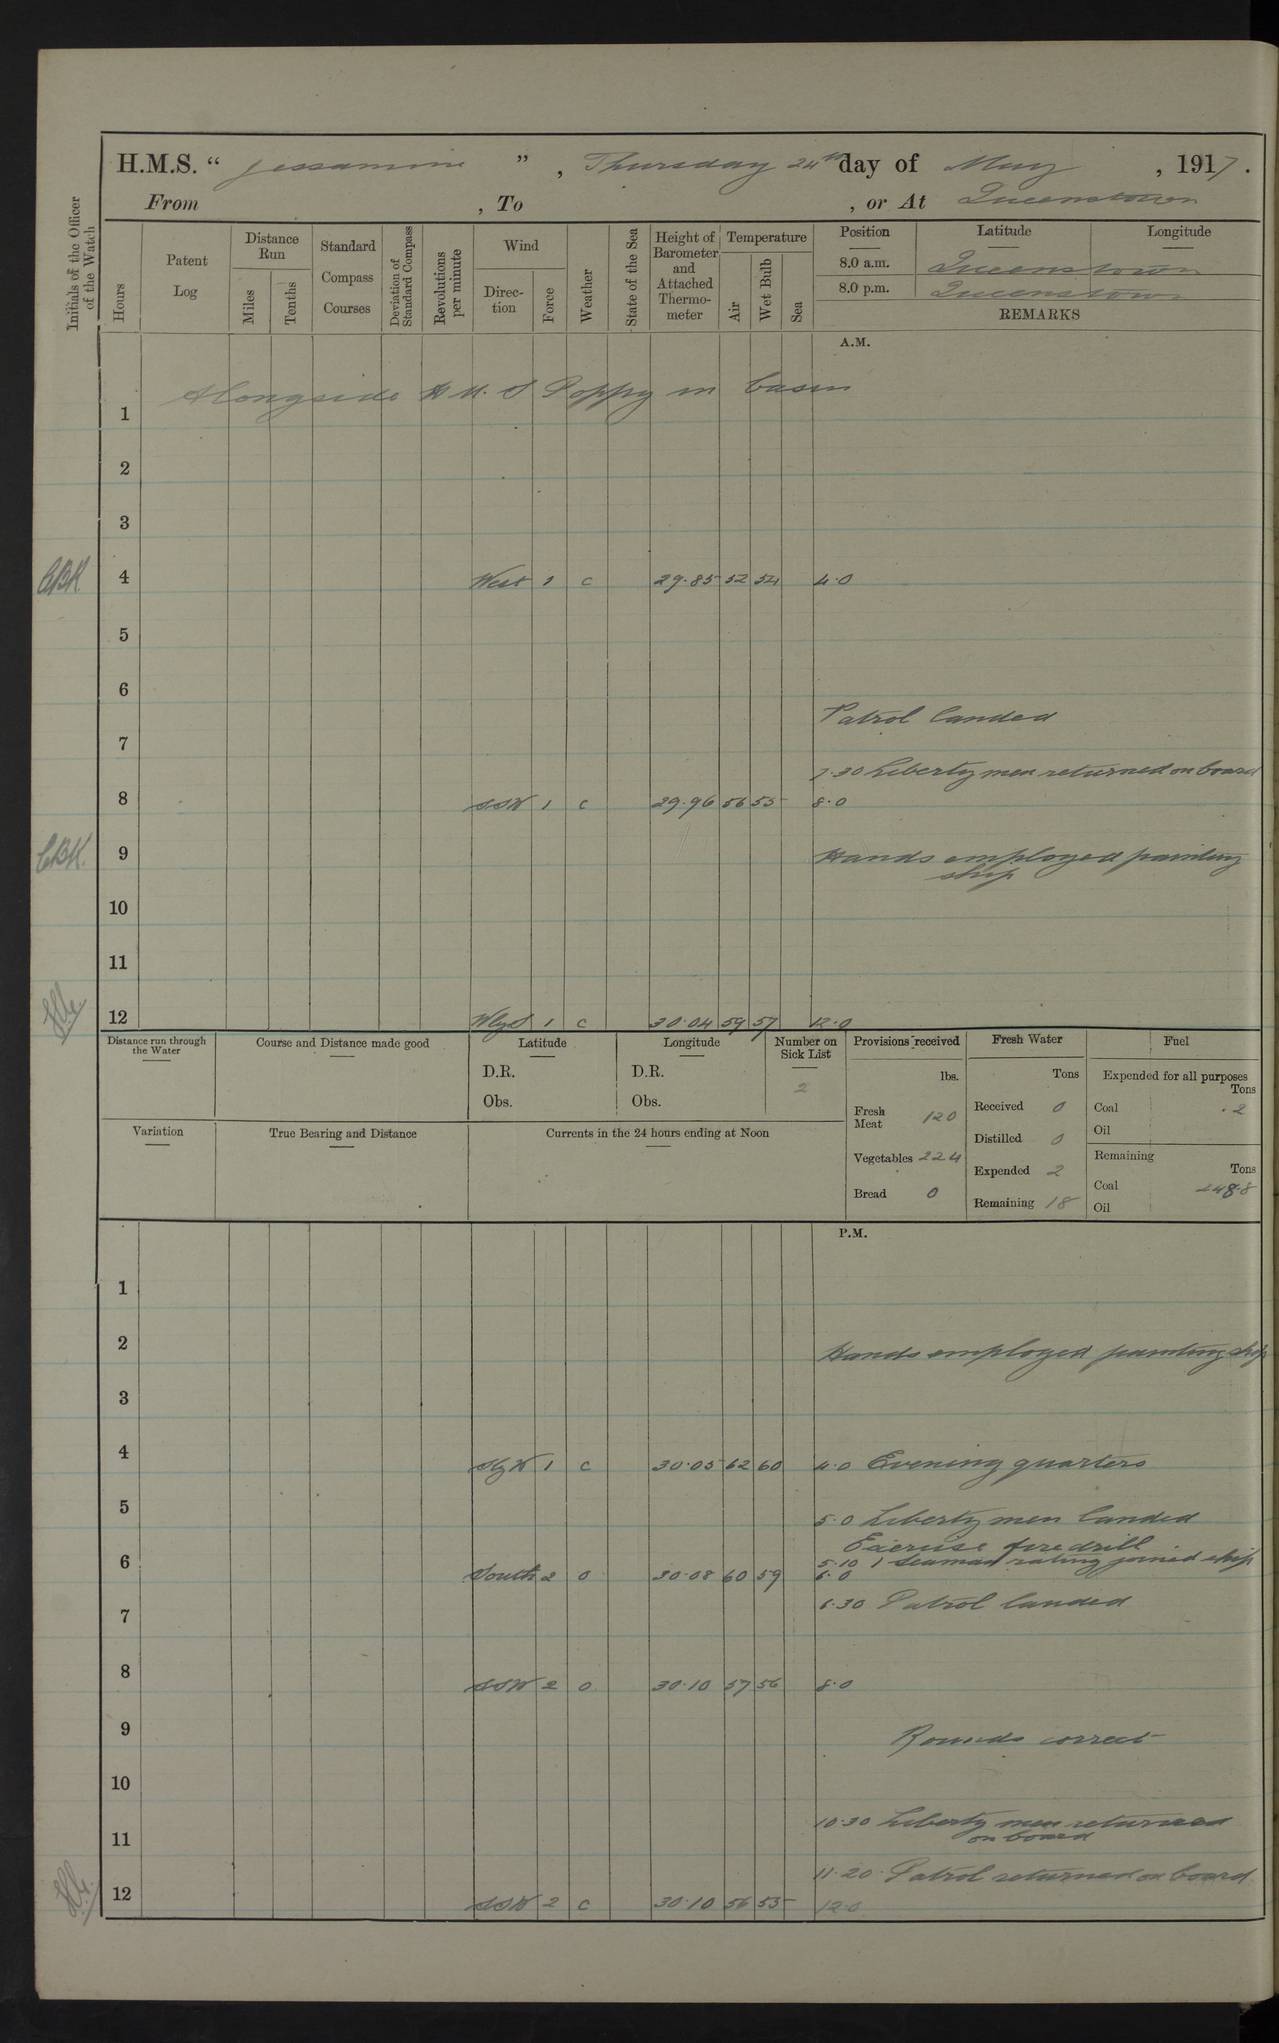 H.M.S. " Jessamine ", Thursday 24th day of May, 1917.
From , To , or At Queenstown
Initials of the Officer of the Watch
Hours
Patent Log
Distance Run
Miles
Tenths
Standard Compass Courses
Deviation of Standard Compass
Revolutions per minute
Wind
Direction
Force
Weather
State of the Sea
Height of Barometer and Attached Thermometer
Temperature
Air
Wet Bulb
Sea
Position Latitude Longitude
8.0 a.m. Queenstown
8.0 p.m. Queenstown
REMARKS
A.M.
Alongside H.M.S Poppy in basin
1
2
3
CBK 4 West 1 c 29.85 52 54 4.0
5
6
Patrol landed
7
7.30 Liberty men returned on board
8 SSW 1 c 29.96 56 55 8.0
CBK. 9 Hands employed painting
ship
10
11
12 WbyS 1 c 30.04 59 57 12.0
Distance run through the Water
Course and Distance made good
Latitude
D.R.
Obs.
Longitude
D.R.
Obs.
Number on Sick List
2
Variation
True Bearing and Distance
Currents in the 24 hours ending at Noon
Provisions received
lbs.
Fresh Meat 120
Vegetables 224
Bread 0
Fresh Water
Tons
Received 0
Distilled 0
Expended 2
Remaining 18
Fuel
Expended for all purposes
Tons
Coal .2
Oil
Remaining
Tons
Coal 248.8
Oil
P.M.
1
2 Hands employed painting ship
3
4 SbyW 1 c 30.05 62 60 4.0 Evening quarters
5 5.0 Liberty men landed
Exercise fire drill
5.10 1 Seaman rating joined ship
6 South 2 o 30.08 60 59 6.0
7 6.30 Patrol landed
8 SSW 2 o 30.10 57 56 8.0
9 Rounds correct
10
10.30 Liberty men returned
11 on board
11.20 Patrol returned on board
12 SSW 2 c 30.10 56 55 12.0